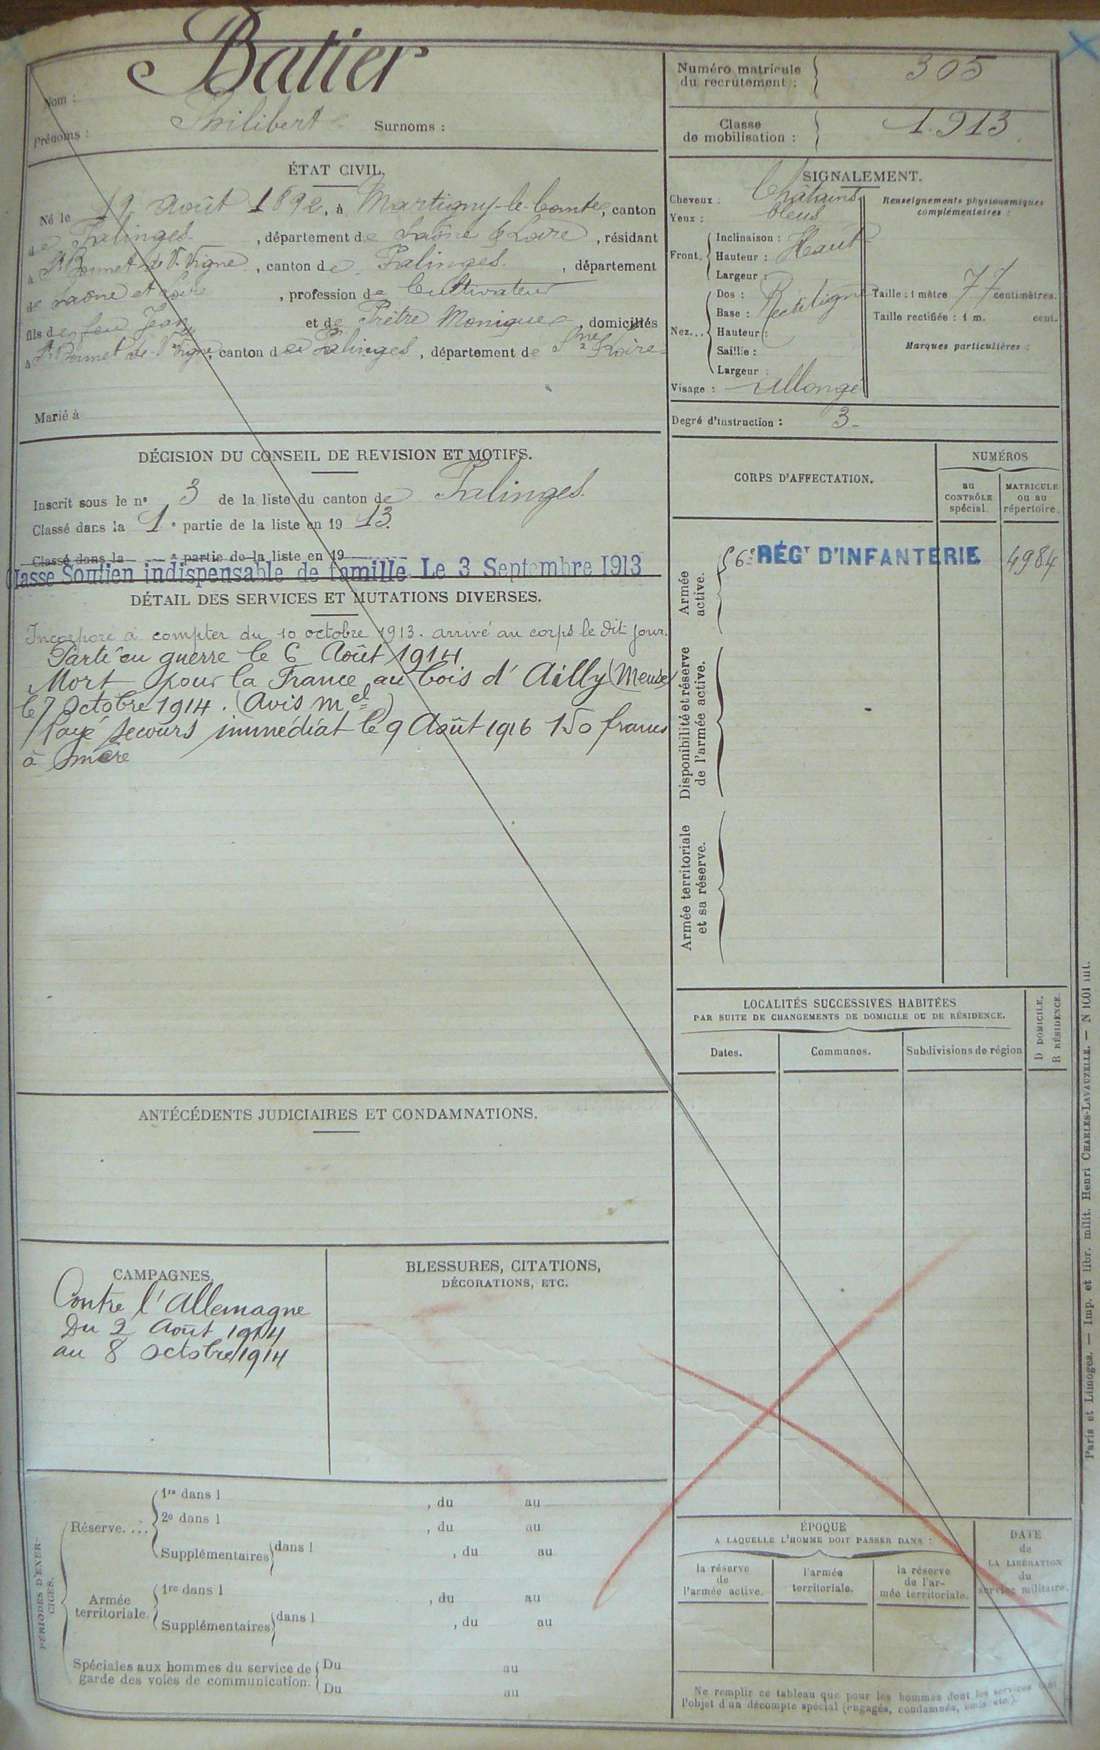 Nom : Batier
Prénoms : Philibert Surnoms :
Numéro matricule
du recrutement : 305
Classe
de mobilisation : 1913
ÉTAT CIVIL.
Né le 19 août 1892, à Martigny-le-Comte, canton
de Palinges, département de Saône & Loire, résidant
à St Bonnet de Vle Vigne, canton de Palinges, département
de Saône et Loire, profession de Cultivateur
fils de feu Jean et de Prêtre Monique, domiciliés
à St Bonnet de Vle Vigne, canton de Palinges, département de Sne & Loire
Marié à
SIGNALEMENT.
Cheveux : Châtains
Yeux : bleus
Front. Inclinaison :
Hauteur : Haut
Largeur :
Nez... Dos : Rectiligne
Base :
Hauteur :
Saillie :
Largeur :
Visage : allongé
Renseignements physionomiques
complémentaires :
Taille : 1 mètre 77 centimètres.
Taille rectifiée : 1 m. cent.
Marques particulières :
Degré d'instruction : 3
DÉCISION DU CONSEIL DE REVISION ET MOTIFS.
Inscrit sous le n° 3 de la liste du canton de Palinges
Classé dans la 1e partie de la liste en 1913.
Classé dans la e partie de la liste en 19
Classé Soutien indispensable de famille. Le 3 Septembre 1913
DÉTAIL DES SERVICES ET MUTATIONS DIVERSES.
Incorporé à compter du 10 octobre 1913. arrivé au corps le dit jour.
Parti en guerre le 6 Août 1914
Mort pour la France au bois d'Ailly (Meuse)
le 7 Octobre 1914. (Avis mel)
Payé secours immédiat le 9 Août 1916 150 francs
à mère
CORPS D'AFFECTATION.
NUMÉROS
au
CONTRÔLE
spécial.
MATRICULE
ou au
répertoire.
Armée
active.
56e RÉGT D'INFANTERIE 4984
Disponibilité et réserve
de l'armée active.
Armée territoriale
et sa réserve.
LOCALITÉS SUCCESSIVES HABITÉES
PAR SUITE DE CHANGEMENTS DE DOMICILE OU DE RÉSIDENCE.
D DOMICILE.
R RÉSIDENCE.
Dates. Communes. Subdivisions de région
ANTÉCÉDENTS JUDICIAIRES ET CONDAMNATIONS.
CAMPAGNES.
Contre l'Allemagne
Du 2 Août 1914
au 8 Octobre 1914
BLESSURES, CITATIONS,
DÉCORATIONS, ETC.
PÉRIODES D'EXER-
CICES.
Réserve.... 1re dans l , du au
2e dans l , du au
Supplémentaires dans l , du au
Armée
territoriale. 1re dans l , du au
Supplémentaires dans l , du au
Spéciales aux hommes du service de
garde des voies de communication. Du au
Du au
ÉPOQUE
A LAQUELLE L'HOMME DOIT PASSER DANS :
la réserve
de
l'armée active.
l'armée
territoriale.
la réserve
de l'ar-
mée territoriale.
DATE
de
LA LIBÉRATION
du
service militaire.
Ne remplir ce tableau que pour les hommes dont les services font
l'objet d'un décompte spécial (engagés, condamnés, omis, etc.).
Paris et Limoges. — Imp. et libr. milit. Henri CHARLES-LAVAUZELLE. — N 1001 int.